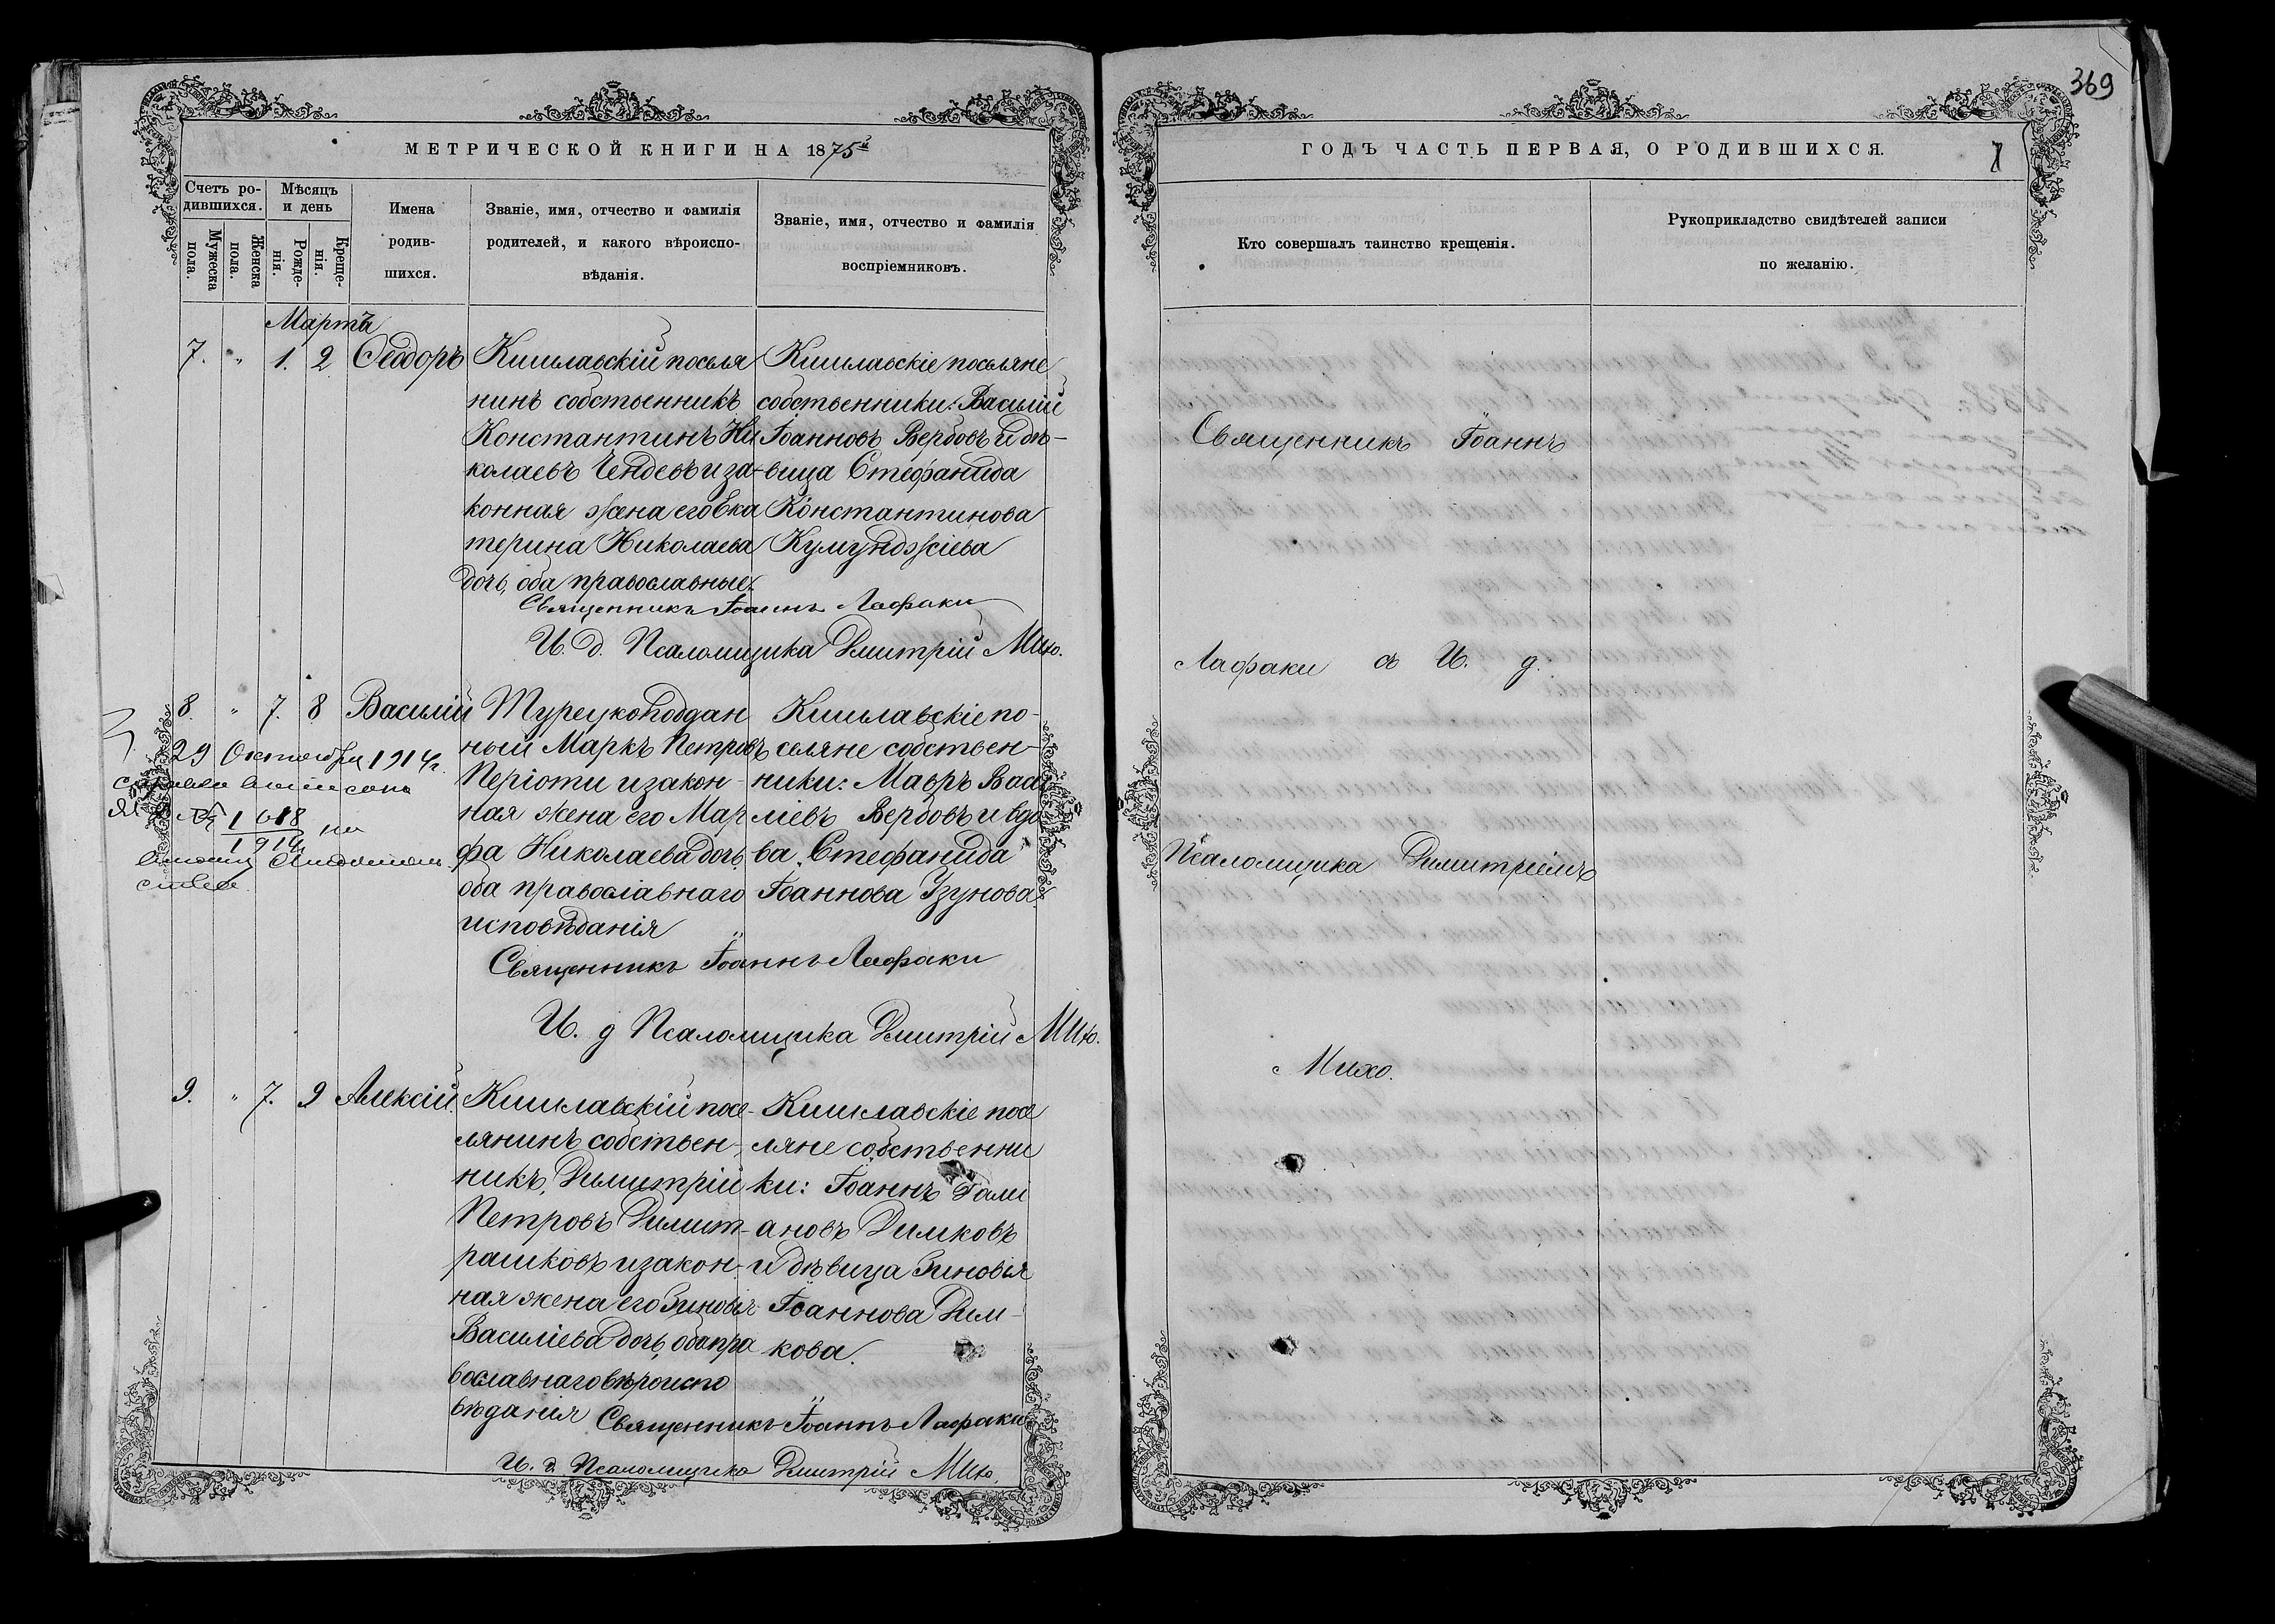 369
МЕТРИЧЕСКОЙ КНИГИ НА 1875й
ГОДЪ ЧАСТЬ ПЕРВАЯ, О РОДИВШИХСЯ.
Счетъ ро-
дившихся.
Мужеска
пола.
Женска
пола.
Мѣсяцъ
и день
Рожде-
нія.
Креще-
нія.
Имена
родив-
шихся.
Званіе, имя, отчество и фамилія
родителей, и какого вѣроиспо-
вѣданія.
Званіе, имя, отчество и фамилія
воспріемниковъ.
Кто совершалъ таинство крещенія.
Рукоприкладство свидѣтелей записи
по желанію.
Мартъ
7. " 1. 2 Ѳеодоръ
Кишлавскій поселя
нинъ собственникъ
Константинъ Ни
колаевъ Чендевъ и за-
конная жена его Ека
терина Николаева
дочь, оба православные.
Кишлавскіе поселяне
собственники: Василій
Іоанновъ Вербовъ и дѣ-
вица Стефанида
Константинова
Кумунджіева
Священникъ Іоаннъ Лафаки
И. д. Псаломщика Димитрій Михо.
8. " 7. 8 Василій
Турецкоподдан
ный Маркъ Петровъ
Періоти и закон-
ная жена его Мар
фа Николаева дочь,
оба православнаго
исповѣданія
Кишлавскіе по-
селяне собствен-
ники: Мавръ Васи
ліевъ Вербовъ и вдо
ва Стефанида
Іоаннова Узунова.
29 Октября 1914 г.
№ 1618
1914
Священникъ Іоаннъ Лафаки
И. д Псаломщика Димитрій Михо.
9. " 7. 9 Алексій.
Кишлавскій посе-
лянинъ собствен-
никъ, Димитрій
Петровъ Димит-
рашковъ и закон-
ная жена его Зиновія
Василіева дочь, оба пра
вославнаго вѣроиспо
вѣданія
Кишлавскіе посе
ляне собственни
ки: Іоаннъ Гали
ановъ Димковъ
и дѣвица Зиновія
Іоаннова Дим-
кова.
Священникъ Іоаннъ Лафаки
И. д. Псаломщика Димитрій Михо.
Священникъ Іоаннъ
Лафаки съ И. д.
Псаломщика Димитріемъ
Михо.